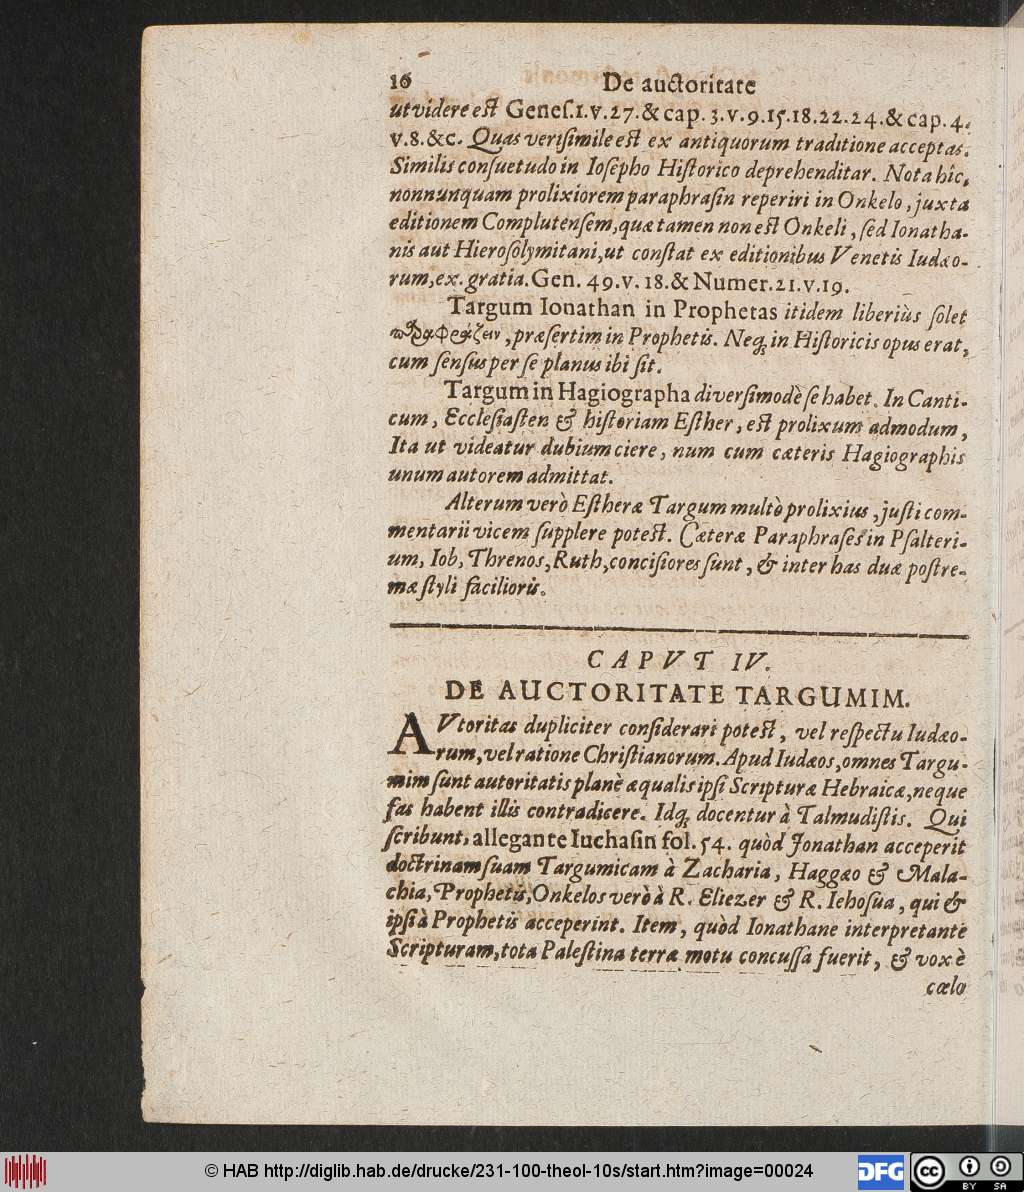 16 De auctoritate
ut videre est Genes.1.v.27.& cap. 3.v.9.15.18.22.24.& cap. 4.
v.8.&c. Quas verisimile est ex antiquorum traditione acceptas.
Similis consuetudo in Iosepho Historico deprehenditar. Nota hîc,
nonnunquam prolixiorem paraphrasin reperiri in Onkelo, juxta
editionem Complutensem, quæ tamen non est Onkeli, sed Ionatha-
nis aut Hierosolymitani, ut constat ex editionibus Venetis Iudæo-
rum, ex. gratia. Gen. 49.v. 18.& Numer.21.v.19.
Targum Ionathan in Prophetas itidem liberiùs solet
παραφράζειν, præsertim in Prophetis. Neq; in Historicis opus erat,
cum sensus per se planus ibi sit.
Targum in Hagiographa diversimodè se habet. In Canti-
cum, Ecclesiasten & historiam Esther, est prolixum admodum,
Ita ut videatur dubium ciere, num cum cæteris Hagiographis
unum autorem admittat.
Alterum verò Estheræ Targum multò prolixius, justi com-
mentarii vicem supplere potest. Cæteræ Paraphrases in Psalteri-
um, Iob, Threnos, Ruth, concisiores sunt, & inter has duæ postre-
mæ styli facilioris.
CAPVT IV.
DE AUCTORITATE TARGUMIM.
AVtoritas dupliciter considerari potest, vel respectu Iudæo-
rum, vel ratione Christianorum. Apud Iudæos, omnes Targu-
mim sunt autoritatis planè æqualis ipsi Scripturæ Hebraicæ, neque
fas habent illis contradicere. Idq; docentur à Talmudistis. Qui
scribunt, allegante Iuchasin fol. 54. quòd Jonathan acceperit
doctrinam suam Targumicam à Zacharia, Haggæo & Mala-
chia, Prophetis, Onkelos verò à R. Eliezer & R. Iehosua, qui &
ipsi à Prophetis acceperint. Item, quòd Ionathane interpretante
Scripturam, tota Palestina terræ motu concussa fuerit, & vox è
cœlo
© HAB http://diglib.hab.de/drucke/231-100-theol-10s/start.htm?image=00024
DFG
cc BY SA